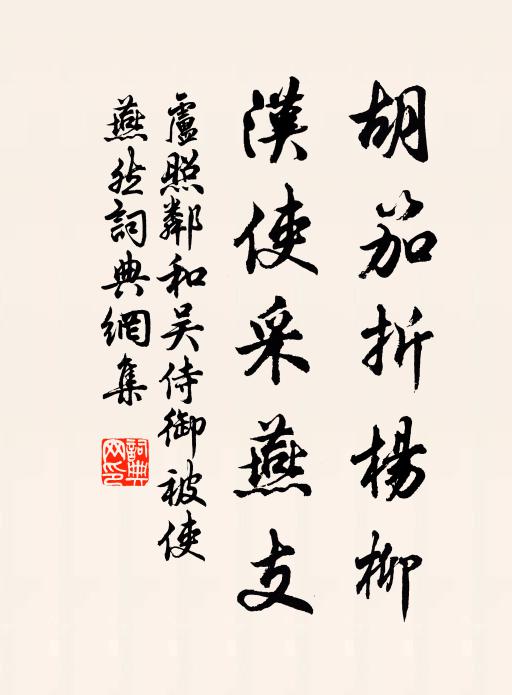 胡笳折楊柳
漢使采燕支
盧照鄰和吴侍御被使
燕然詞典網集
詞典网印